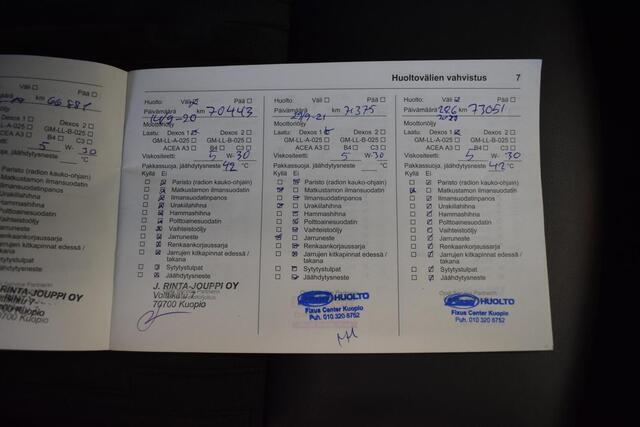 Huoltovälien vahvistus 7
Väli ☐ Pää ☐
km 66 881
Dexos 1 ☐ Dexos 2 ☐
GM-LL-A-025 ☐ GM-LL-B-025 ☐
ACEA A3 ☐ B4 ☐ C3 ☐
5 W- 30
suoja, jäähdytysneste °C
Paristo (radion kauko-ohjain)
Matkustamon ilmansuodatin
Ilmansuodatinpanos
Urakiilahihna
Hammashihna
Polttoainesuodatin
Vaihteistoöljy
Jarruneste
Renkaankorjaussarja
Jarrujen kitkapinnat edessä /
takana
Sytytystulpat
Jäähdytysneste
RINTA-JOUPPI OY
70700 Kuopio
Huolto: Väli ☒ Pää ☐
Päivämäärä km 70443
14/9-20
Moottoriöljy
Laatu: Dexos 1 ☒ Dexos 2 ☐
GM-LL-A-025 ☐ GM-LL-B-025 ☐
ACEA A3 ☐ B4 ☐ C3 ☐
Viskositeetti: 5 W- 30
Pakkassuoja, jäähdytysneste 42 °C
Kyllä Ei
Paristo (radion kauko-ohjain)
Matkustamon ilmansuodatin
Ilmansuodatinpanos
Urakiilahihna
Hammashihna
Polttoainesuodatin
Vaihteistoöljy
Jarruneste
Renkaankorjaussarja
Jarrujen kitkapinnat edessä /
takana
Sytytystulpat
Jäähdytysneste
J. RINTA-JOUPPI OY
70700 Kuopio
Huolto: Väli Pää ☐
Päivämäärä km 71375
Moottoriöljy
Laatu: Dexos 1 ☒ Dexos 2 ☐
GM-LL-A-025 ☐ GM-LL-B-025 ☐
ACEA A3 ☐ B4 ☐ C3 ☐
Viskositeetti: 5 W- 30
Pakkassuoja, jäähdytysneste °C
Kyllä Ei
Paristo (radion kauko-ohjain)
Matkustamon ilmansuodatin
Ilmansuodatinpanos
Urakiilahihna
Hammashihna
Polttoainesuodatin
Vaihteistoöljy
Jarruneste
Renkaankorjaussarja
Jarrujen kitkapinnat edessä /
takana
Sytytystulpat
Jäähdytysneste
HUOLTO
Fixus Center Kuopio
Puh. 010 320 8752
Huolto: Väli ☒ Pää ☐
Päivämäärä km 73051
Moottoriöljy
Laatu: Dexos 1 ☒ Dexos 2 ☐
GM-LL-A-025 ☐ GM-LL-B-025 ☐
ACEA A3 ☐ B4 ☐ C3 ☐
Viskositeetti: 5 W- 30
Pakkassuoja, jäähdytysneste 42 °C
Kyllä Ei
Paristo (radion kauko-ohjain)
Matkustamon ilmansuodatin
Ilmansuodatinpanos
Urakiilahihna
Hammashihna
Polttoainesuodatin
Vaihteistoöljy
Jarruneste
Renkaankorjaussarja
Jarrujen kitkapinnat edessä /
takana
Sytytystulpat
Jäähdytysneste
HUOLTO
Fixus Center Kuopio
Puh. 010 320 8752